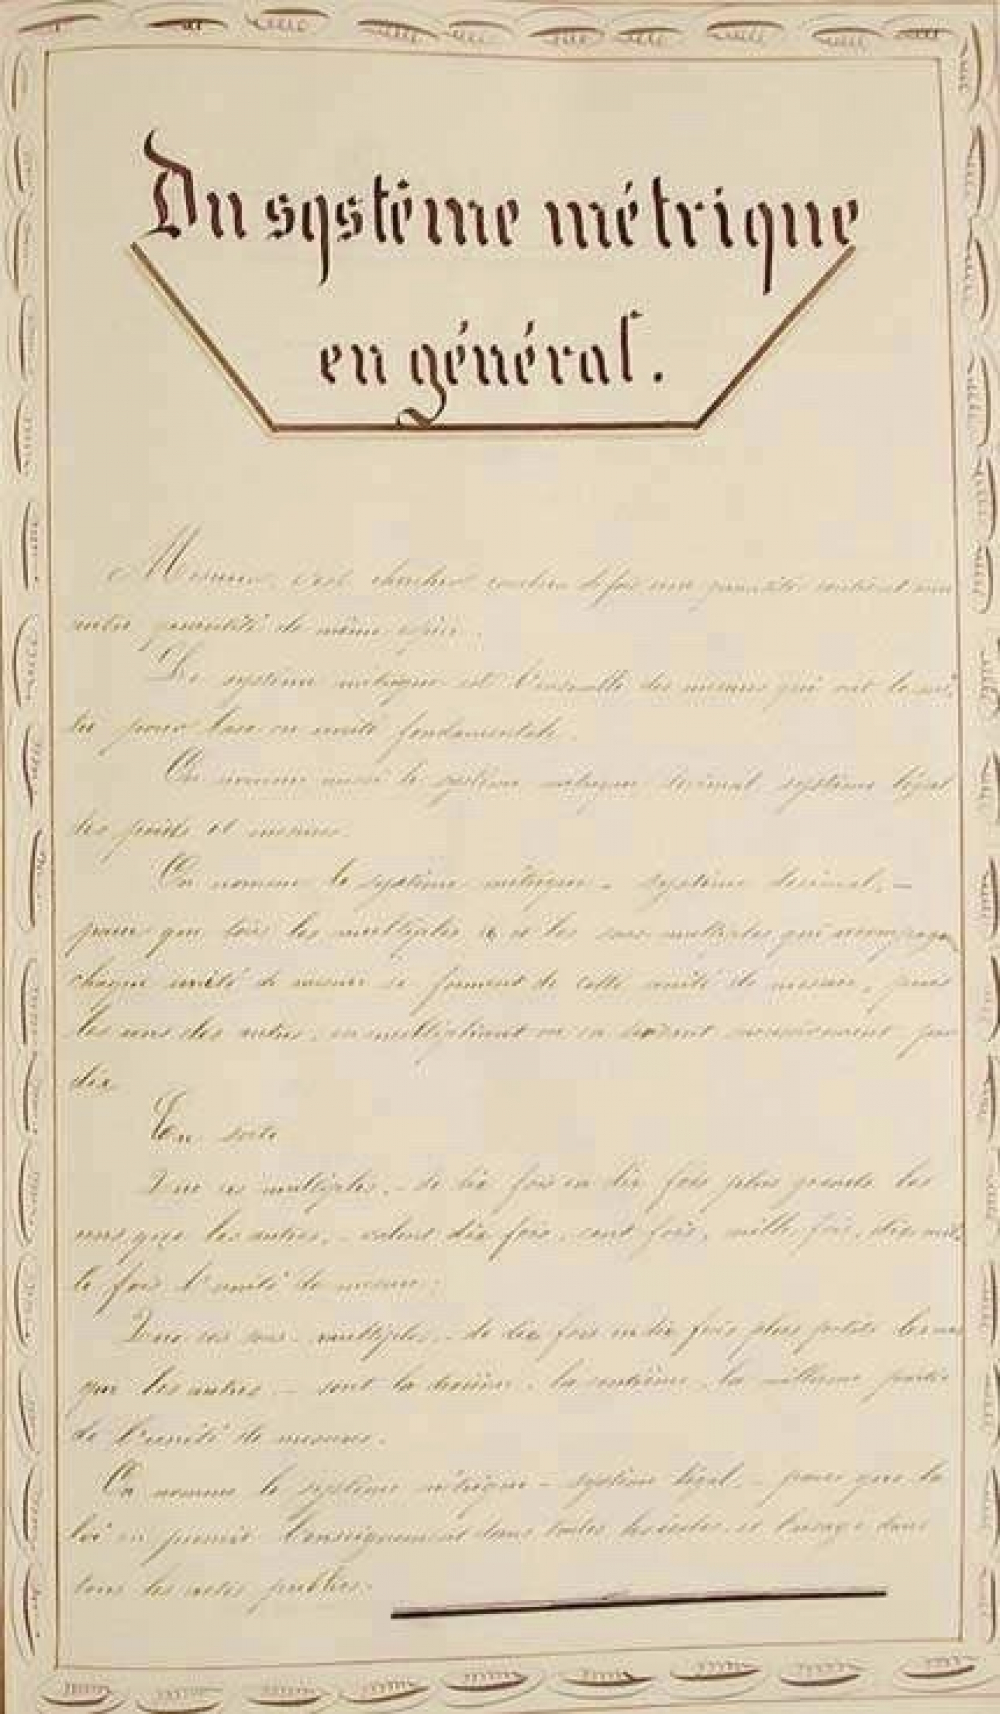 Du système métrique
en général.
Mesurer c'est chercher combien de fois une quantité contient une
autre quantité de même espèce.
Le système métrique est l'ensemble des mesures qui ont le mè-
tre pour base ou unité fondamentale.
On nomme aussi le système métrique décimal système légal
des poids et mesures.
On nomme le système métrique - système décimal, -
parce que tous les multiples et les sous-multiples qui
chaque unité de mesure se forment de cette unité de mesure, puis
les uns des autres, en multipliant ou en divisant successivement par
dix.
En sorte
Que ces multiples, - de dix fois en dix fois plus grands les
uns que les autres, - valent dix fois, cent fois, mille fois, dix mil-
le fois l'unité de mesure;
Que ces sous-multiples, - de dix fois en dix fois plus petits les uns
que les autres - sont la dixième, la centième, la millième partie
de l'unité de mesure.
On nomme le système métrique - système légal, - parce que la
loi en l'enseignement dans toutes les écoles et l'usage dans
tous les actes publics.